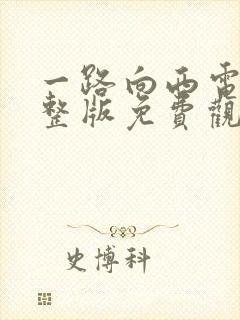 一路向西電
整版免費觀
史博科